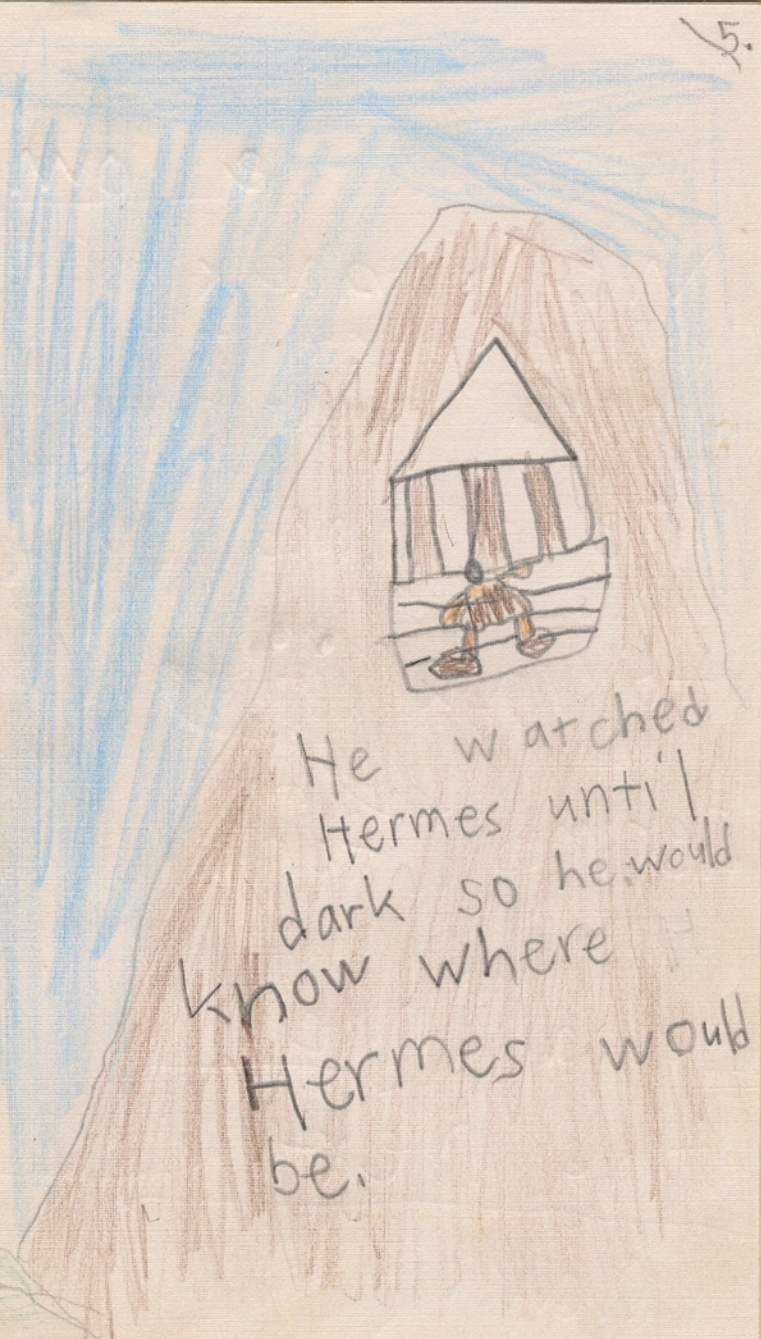 5.
He watched
Hermes until
dark so he would
know where
Hermes would
be.